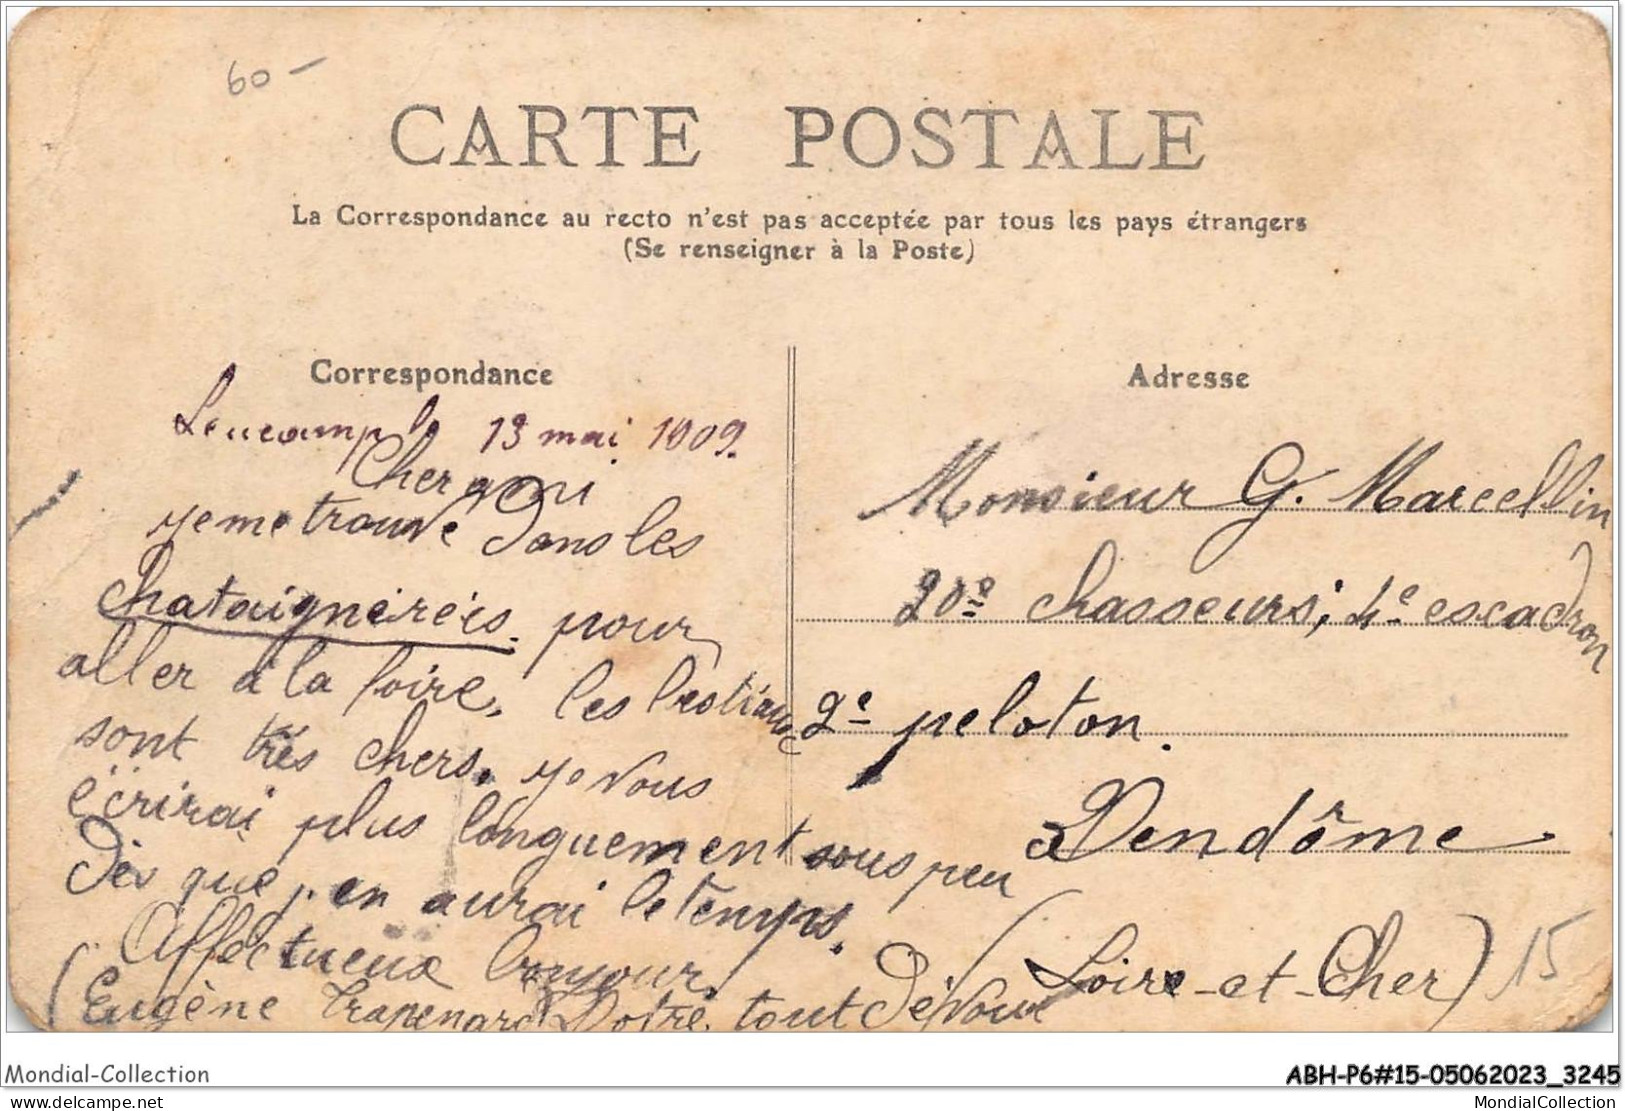 60 -
CARTE POSTALE
La Correspondance au recto n'est pas acceptée par tous les pays étrangers
(Se renseigner à la Poste)
Correspondance
Leucamp le 13 mai 1909.
Cher ami
je me trouve dans les
Chataigneréis pour
aller à la foire, les bestiaux
sont très chers. je vous
écrirai plus longuement sous peu
dès que j'en aurai le temps.
Affectueux bonjour
(Eugène Trapenard Votre tout dévoué
Adresse
Monsieur G. Marcellin
20e chasseurs, 4e escadron
2e peloton.
à Vendôme
(Loire-et-Cher)
15
Mondial-Collection
ABH-P6#15-05062023_3245
www.delcampe.net
MondialCollection